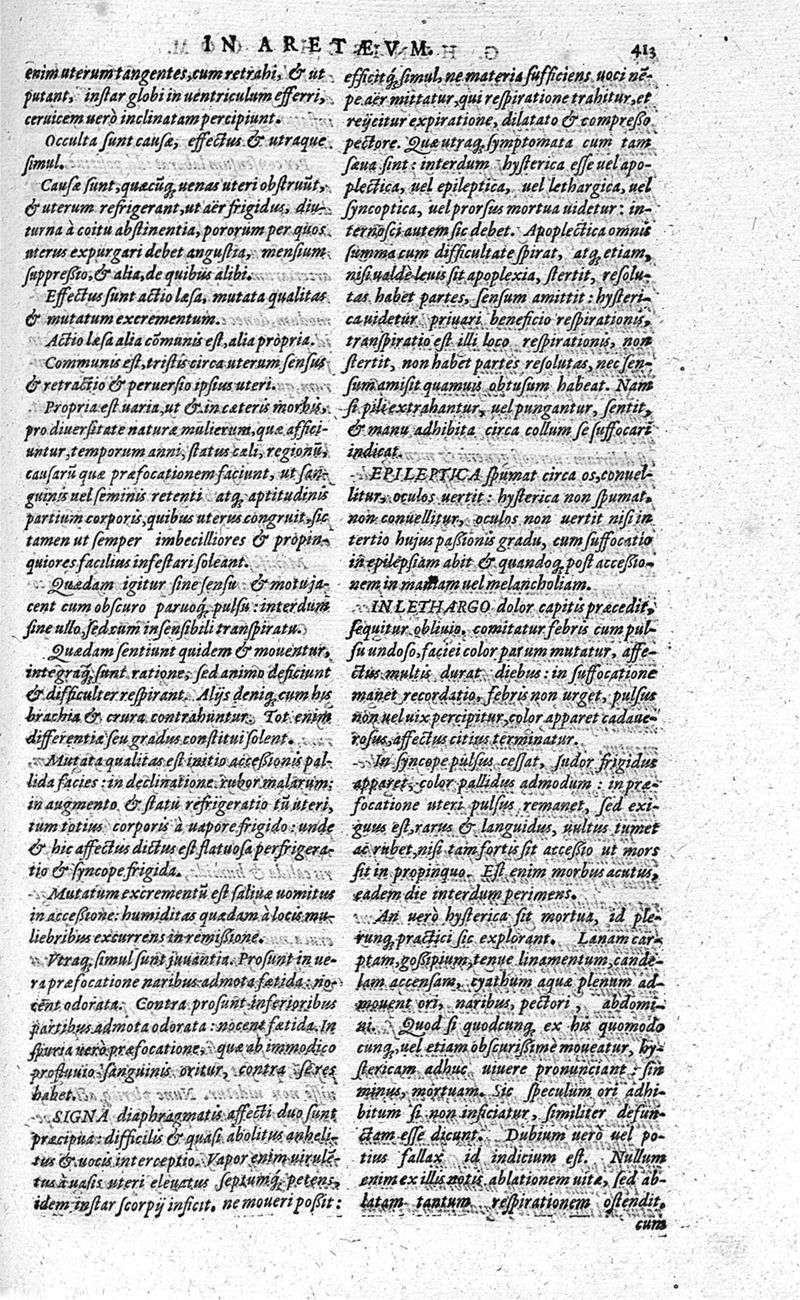 IN ARETÆVM. 413
enim uterum tangentes, cum retrahi, & ut
putant, instar globi in uentriculum efferri,
ceruicem uerò inclinatam percipiunt.
Occulta sunt causæ, effectus & utraque
simul.
Causæ sunt, quæcũq; uenas uteri obstruũt,
& uterum refrigerant, ut aër frigidus, diu-
turna à coitu abstinentia, pororum per quos
uterus expurgari debet angustia, mensium
suppressio, & alia, de quibus alibi.
Effectus sunt actio læsa, mutata qualitas
& mutatum excrementum.
Actio læsa alia cõmunis est, alia pròpria.
Communis est, tristis circa uterum sensus
& retractio & peruersio ipsius uteri.
Propria est uaria, ut & in cæteris morbis,
pro diuersitate naturæ mulierum, quæ affici-
untur, temporum anni, status cæli, regionũ,
causarũ quæ præfocationem faciunt, ut san-
guinis uel seminis retenti atq; aptitudinis
partium corporis, quibus uterus congruit, sic
tamen ut semper imbecilliores & pròpin-
quiores facilius infestari soleant.
Quædam igitur sine sensu & motu ja-
cent cum obscuro paruoq; pulsu: interdum
sine ullo, sed cum insensibili transpiratu.
Quædam sentiunt quidem & mouentur,
integraq; sunt ratione, sed animo deficiunt
& difficulter respirant. Alijs deniq; cum his
brachia & crura contrahuntur. Tot enim
differentia seu gradus constitui solent.
Mutata qualitas est initio accessionis pal-
lida facies: in declinatione rubor malarum:
in augmento & statu refrigeratio tũ uteri,
tum totius corporis à uapore frigido: unde
& hic affectus dictus est flatuosa perfrigera-
tio & syncope frigida.
Mutatum excrementũ est saliuæ uomitus
in accessione: humiditas quædam à locis mu-
liebribus excurrens in remissione.
Vtraq; simul sunt juuantia. Prosunt in ue-
ra præfocatione naribus admota fætida: no-
cent odorata. Contra prosunt inferioribus
partibus admota odorata: nocent fætida. In
spuria uerò præfocatione, quæ ab immodico
profluuio sanguinis oritur, contra se res
habet.
SIGNA diaphragmatis affecti duo sunt
præcipua: difficilis & quasi abolitus anheli-
tus & uocis interceptio. Vapor enim uirulẽ-
tus à uasis uteri eleuatus septumq; petens,
idem instar scorpij inficit, ne moueri possit:
efficitq; simul, ne materia sufficiens uoci nẽ-
pe aër mittatur, qui respiratione trahitur, et
reijcitur expiratione, dilatato & compresso
pectore. Quæ utraq; symptomata cum tam
sæua sint: interdum hysterica esse uel apo-
plectica, uel epileptica, uel lethargica, uel
syncoptica, uel prorsus mortua uidetur: in-
ternosci autem sic debet. Apoplectica omnis
summa cum difficultate spirat, atq; etiam,
nisi ualde leuis sit apoplexia, stertit, resolu-
tas habet partes, sensum amittit: hysteri-
ca uidetur priuari beneficio respirationis,
transpiratio est illi loco respirationis, non
stertit, non habet partes resolutas, nec sen-
sum amisit quamuis obtusum habeat. Nam
si pili extrahantur, uel pungantur, sentit,
& manu adhibita circa collum se suffocari
indicat.
EPILEPTICA spumat circa os, conuel-
litur, oculos uertit: hysterica non spumat,
non conuellitur, oculos non uertit nisi in
tertio hujus passionis gradu, cum suffocatio
in epilepsiam abit & quandoq; post accessio-
nem in maniam uel melancholiam.
IN LETHARGO dolor capitis præcedit,
sequitur obliuio, comitatur febris cum pul-
su undoso, faciei color parum mutatur, affe-
ctus multis durat diebus: in suffocatione
manet recordatio, febris non urget, pulsus
non uel uix percipitur, color apparet cadaue-
rosus, affectus citius terminatur.
In syncope pulsus cessat, sudor frigidus
apparet, color pallidus admodum: in præ-
focatione uteri pulsus remanet, sed exi-
guus est, rarus & languidus, uultus tumet
ac rubet, nisi tam fortis sit accessio ut mors
sit in propinquo. Est enim morbus acutus,
eadem die interdum perimens.
An uerò hysterica sit mortua, id ple-
runq; practici sic explorant. Lanam car-
ptam, gossipium, tenue linamentum, cande-
lam accensam, cyathum aquæ plenum ad-
mouent ori, naribus, pectori, abdomi-
ni. Quod si quodcunq; ex his quomodo
cunq; uel etiam obscurissime moueatur, hy-
stericam adhuc uiuere pronunciant: sin
minus, mortuam. Sic speculum ori adhi-
bitum si non inficiatur, similiter defun-
ctam esse dicunt. Dubium uerò uel po-
tius fallax id indicium est. Nullum
enim ex illis notis ablationem uitæ, sed ab-
latam tantum respirationem ostendit,
cum